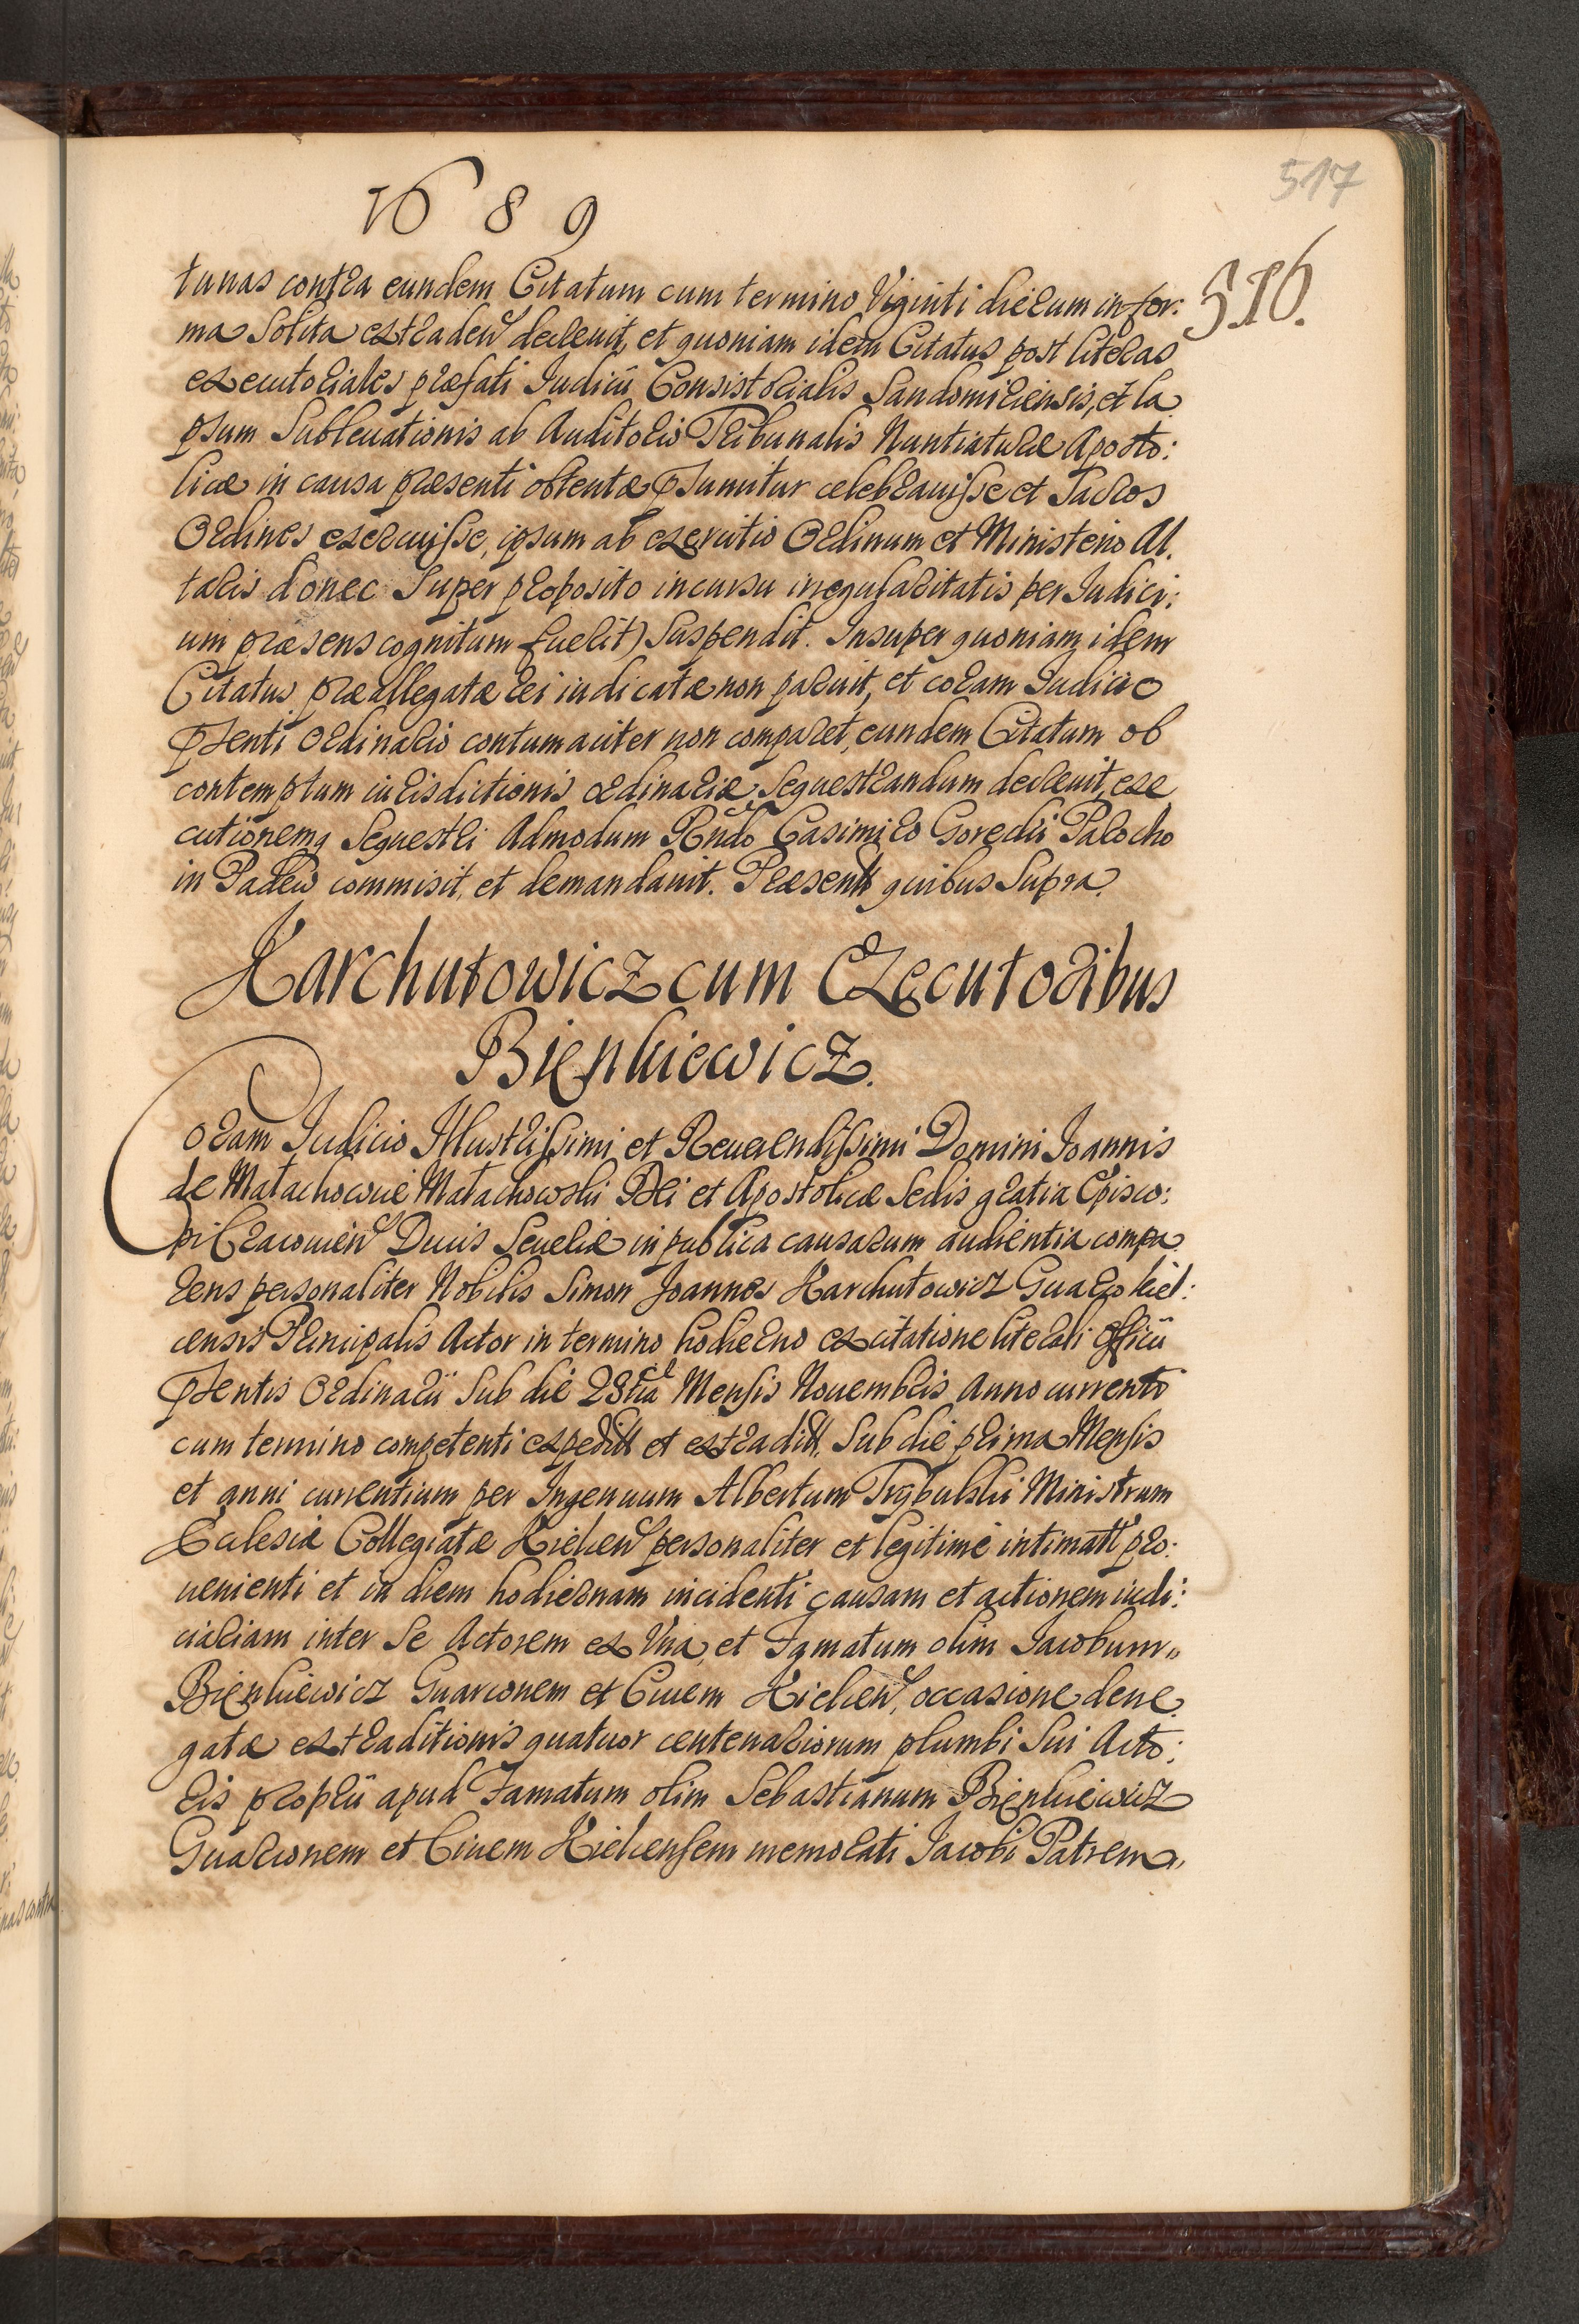 517
1689
516.
tunas contra eundem Citatum cum termino Viginti dierum in for:
ma Solita extraden decreuit, et quoniam idem Citatus post literas
executoriales præfati Iudicij Consistorialis Sandomiriensis, et la
psum Subleuationis ab Auditorio Tribunalis Nuntiaturæ Aposto:
licæ in causa præsenti obtentæ psumitur celebrauisse et Sacros
Ordines exercuisse, ipsum ab exercitio Ordinum et Ministerio Al.
taris donec Super proposito incursu irregularitatis per Iudici:
um præsens cognitum fuerit) Suspendit. Insuper quoniam idem
Citatus præallegatæ rei iudicatæ non paruit, et coram Iudicio
psenti Ordinario contumaciter non comparet, eundem Citatum ob
contemptum iurisdictionis ordinariæ Sequestrandum decreuit, exe
cutionemq Sequestri Admodum Rndo Casimiro Goredii Parocho
in Padew commisit, et demandauit. Præsentt quibus Supra.
Karchutowicz cum Executoribus
Bienkiewicz.
Coram Iudicio Illustrissimi et Reuerendissimi Domini Ioannis
de Małachowie Małachowski Dei et Apostolicæ Sedis gratia Episco:
pi Cracouien Ducis Seueriæ in publica causarum audientia compa
rens personaliter Nobilis Simon Joannes Karchutowicz Guarco kiel:
censis Principalis Actor in termino hodierno ex citatione literali officij
psentis Ordinarij Sub die 28ua Mensis Nouembris Anno currenti
cum termino competenti expeditt et extraditt, Sub die prima Mensis
et anni currentium per Ingenuum Albertum Trybulski Ministrum
Ecclesiæ Collegiatæ Kielcen personaliter et legitime intimatt pro:
uenienti et in diem hodiernam incidenti causam et actionem iudi:
ciariam inter Se Actorem ex Vna, et Famatum olim Iacobum
Bienkiewicz Guarconem et Ciuem Kielcen, occasione dene
gatæ extraditionis quatuor centenariorum plumbi Sui Acto:
ris proprij apud Famatum olim Sebastianum Bienkiewicz
Guarconem et Ciuem Kielcensem memorati Iacobi Patrem